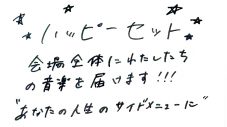 ハッピーセット
会場全体にわたしたち
の音楽を届けます!!!
"あなたの人生のサイドメニューに"